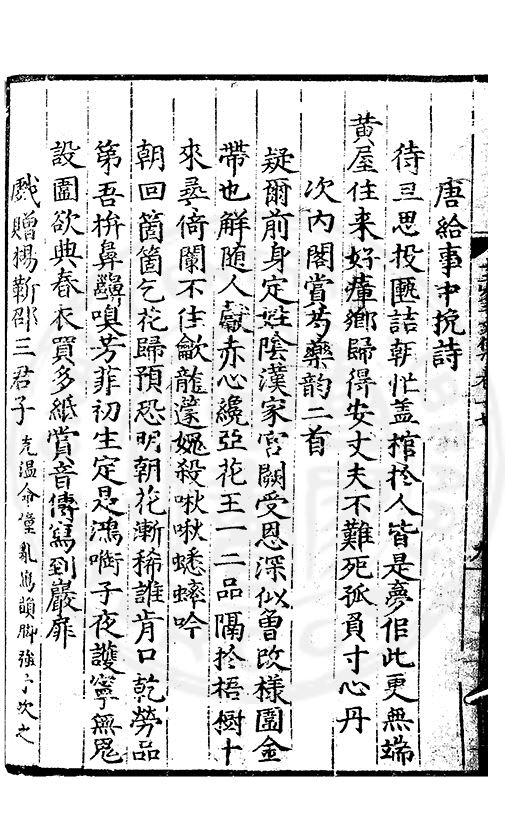 唐給事中挽詩
待旦思投匭詰朝忙盖棺扵人皆是夢但此更無端
黃屋住来好瘴鄉歸得安丈夫不難死孤負寸心丹
次內閣賞芍藥韵二首
疑爾前身定姓陰漢家宮闕受恩深似曾改樣圍金
帶也解随人獻赤心纔亞花王一二品隔扵梧樹十
來尋倚闌不住龡龍濛媿殺啾啾蟋蟀吟
朝回箇箇乞花歸預恐明朝花漸稀誰肯口乾勞品
第吾拚鼻齆嗅芳菲初生定是鴻啣子夜護寧無鬼
設圍欲典春衣買多紙賞音傳寫到巖扉
戲贈楊靳邵三君子 充温命僮亂鴈韻脚強予次之